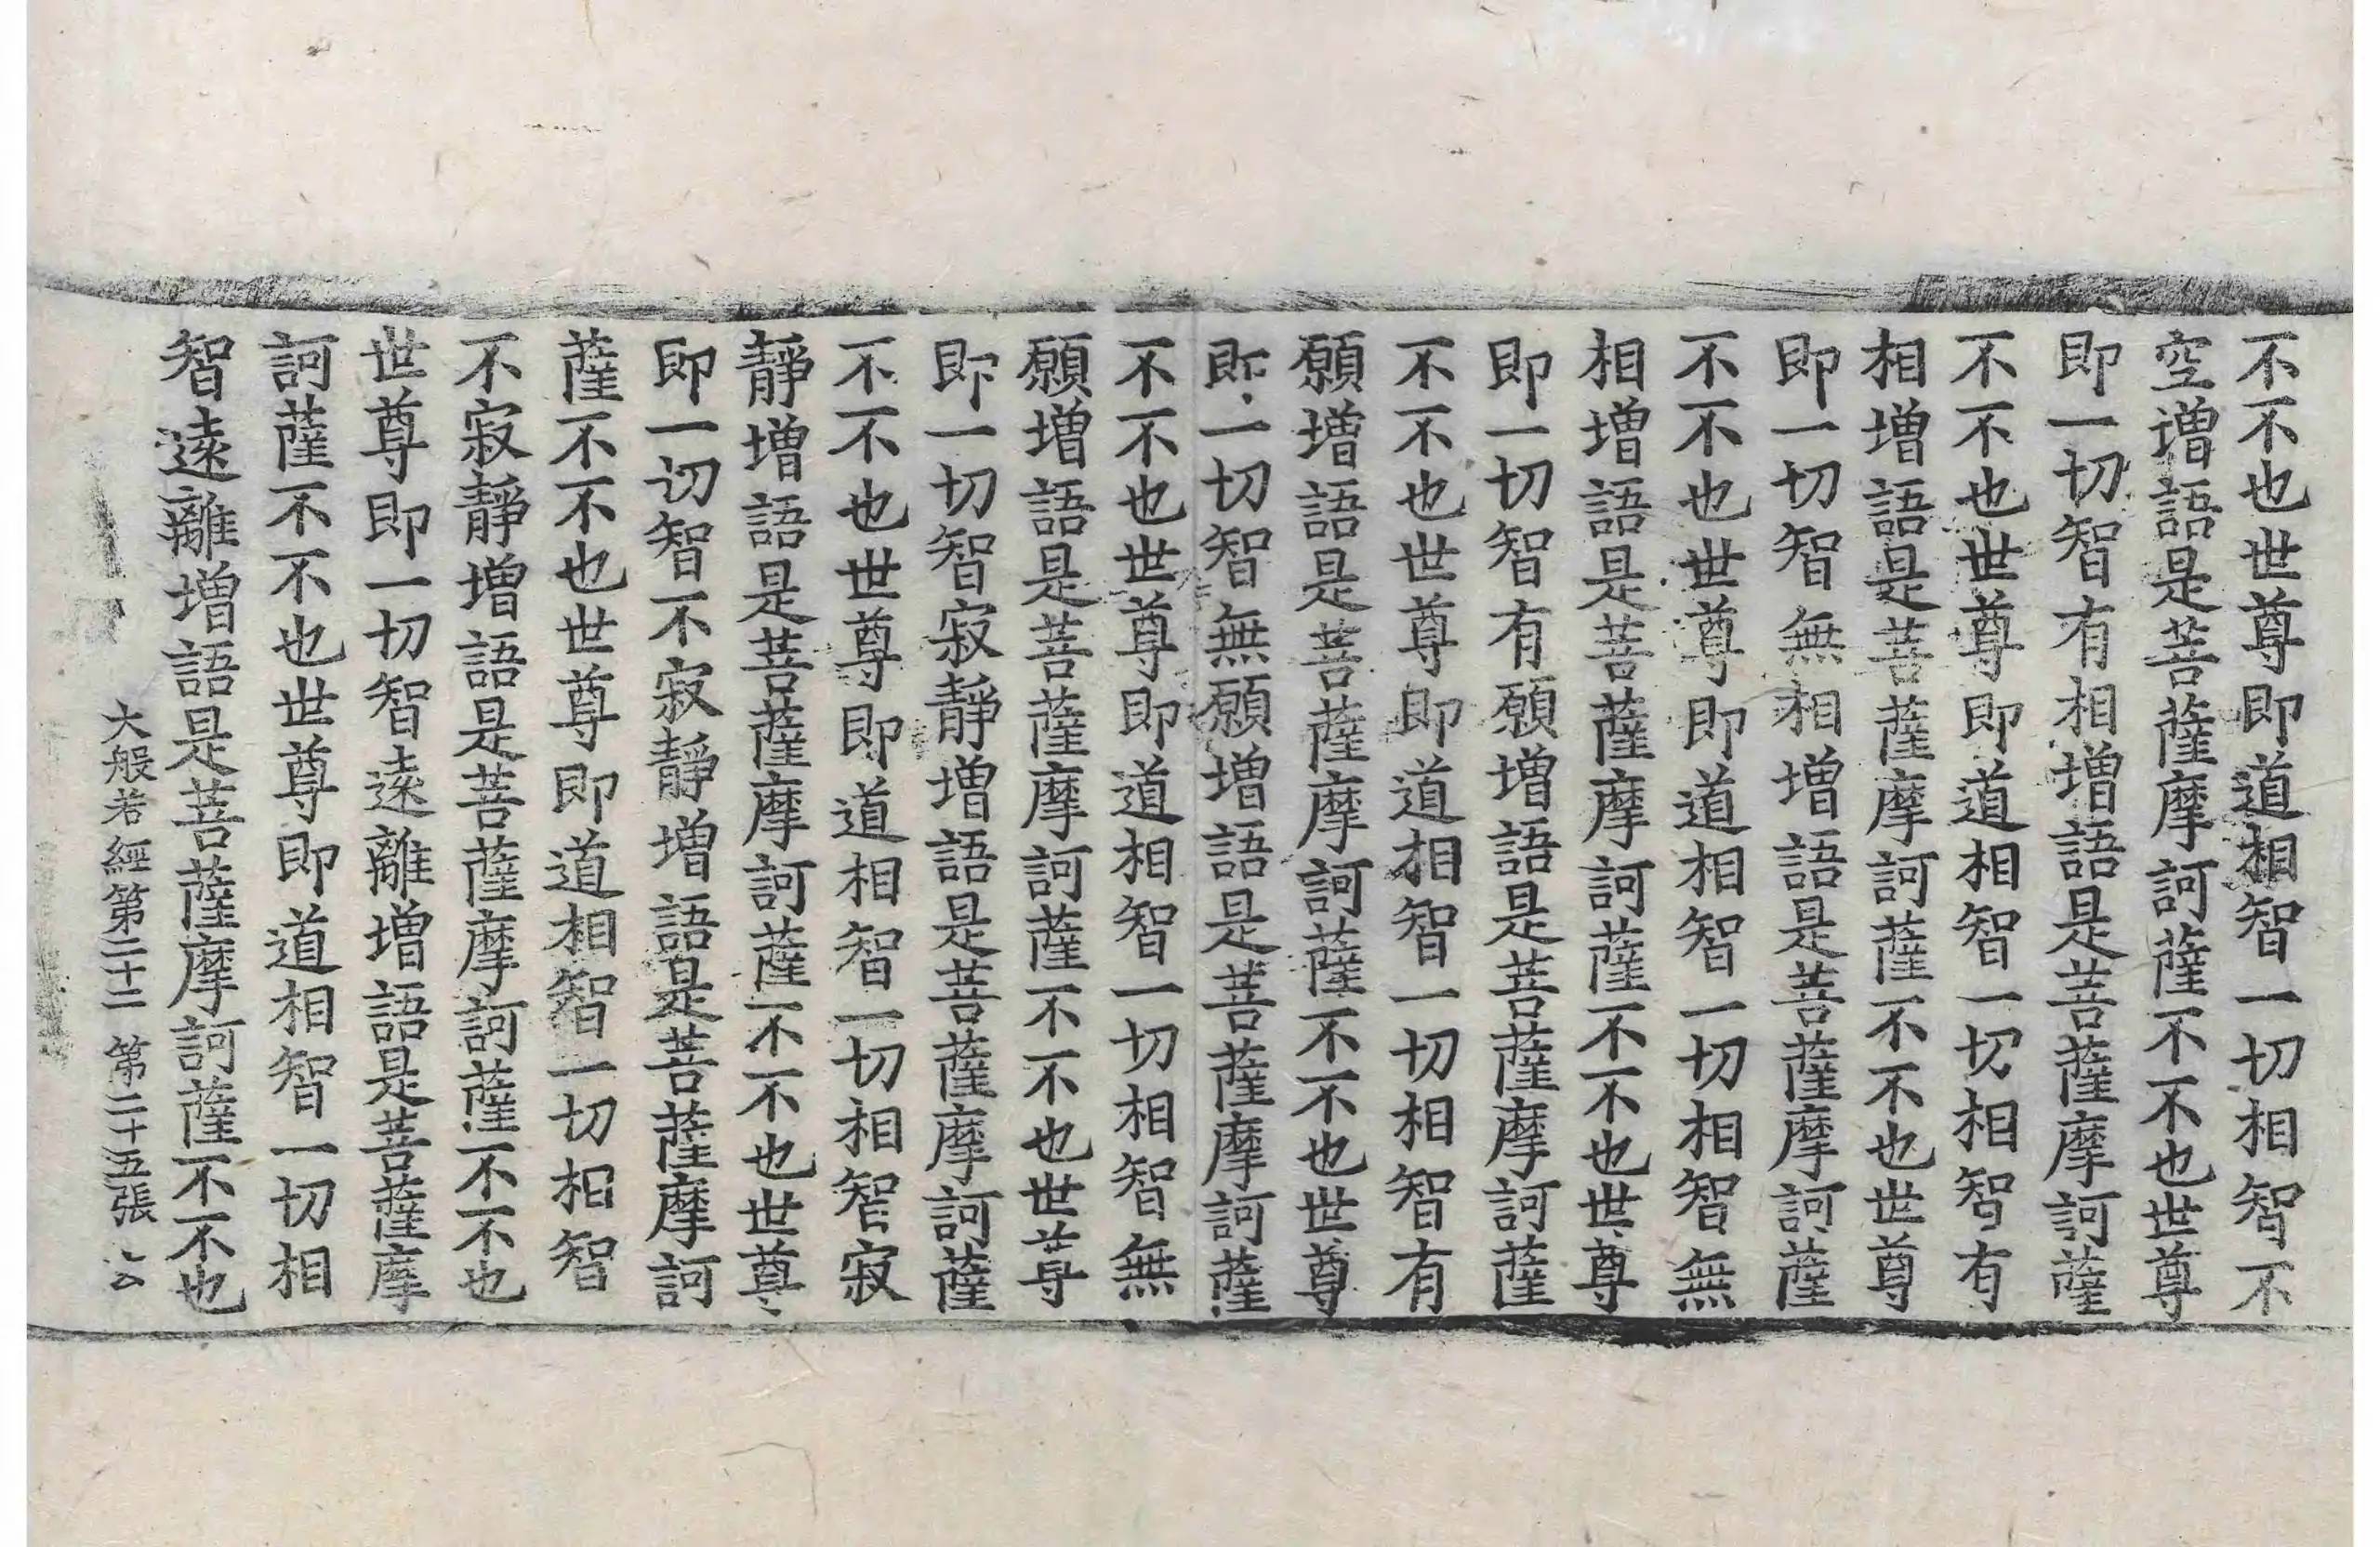 不不也世尊即道相智一切相智不
空增語是菩薩摩訶薩不不也世尊
即一切智有相增語是菩薩摩訶薩
不不也世尊即道相智一切相智有
相增語是菩薩摩訶薩不不也世尊
即一切智無相增語是菩薩摩訶薩
不不也世尊即道相智一切相智無
相增語是菩薩摩訶薩不不也世尊
即一切智有願增語是菩薩摩訶薩
不不也世尊即道相智一切相智有
願增語是菩薩摩訶薩不不也世尊
即一切智無願增語是菩薩摩訶薩
不不也世尊即道相智一切相智無
願增語是菩薩摩訶薩不不也世尊
即一切智寂靜增語是菩薩摩訶薩
不不也世尊即道相智一切相智寂
靜增語是菩薩摩訶薩不不也世尊
即一切智不寂靜增語是菩薩摩訶
薩不不也世尊即道相智一切相智
不寂靜增語是菩薩摩訶薩不不也
世尊即一切智遠離增語是菩薩摩
訶薩不不也世尊即道相智一切相
智遠離增語是菩薩摩訶薩不不也
大般若經第二十二 第二十五張